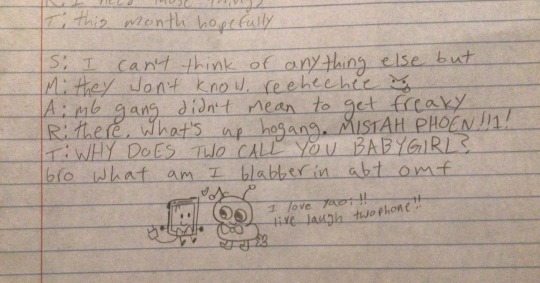 R: I need those things
T: this month hopefully
S: I can't think of anything else but
M: they don't know. reeheehee
A: mb gang didn't mean to get freaky
R: there. What's up hogang. MISTAH PHOEN!!1!
T: WHY DOES TWO CALL YOU BABYGIRL?
bro what am I blabberin abt omf
I love yaoi!!
live laugh twophone!!